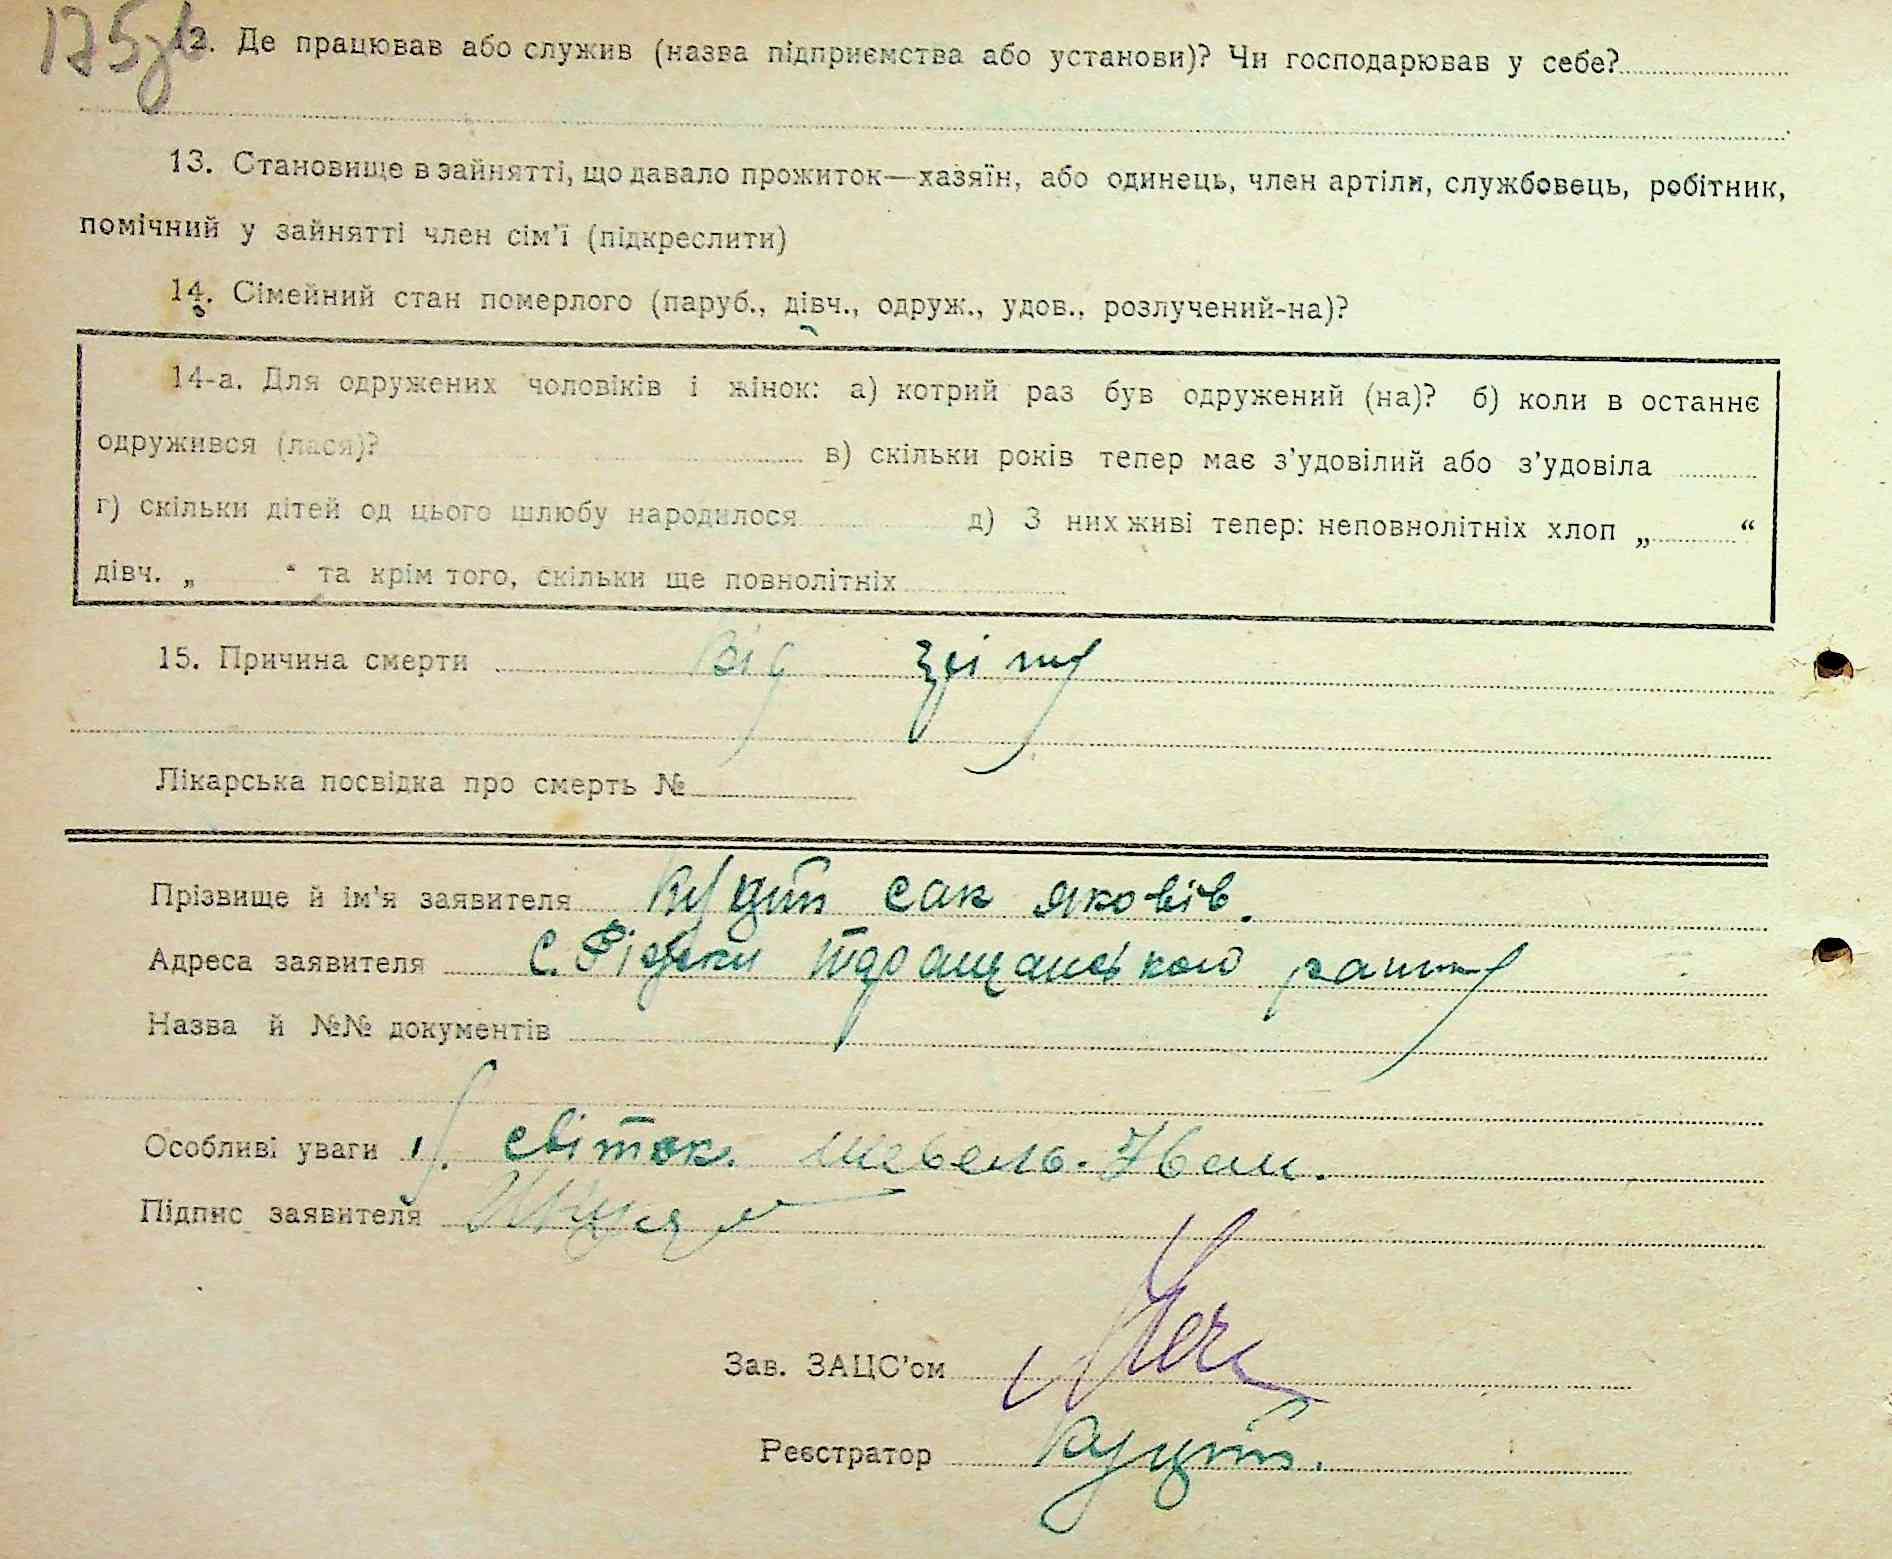 175зв
12. Де працював або служив (назва підприємства або установи)? Чи господарював у себе?
13. Становище в зайнятті, що давало прожиток—хазяїн, або одинець, член артіли, службовець, робітник,
помічний у зайнятті член сім'ї (підкреслити)
14. Сімейний стан померлого (паруб., дівч., одруж., удов., розлучений-на)?
14-а. Для одружених чоловіків і жінок: а) котрий раз був одружений (на)? б) коли в останнє
одружився (лася)? в) скільки років тепер має з'удовілий або з'удовіла
г) скільки дітей од цього шлюбу народилося д) З них живі тепер: неповнолітніх хлоп „ “
дівч. „ “ та крім того, скільки ще повнолітніх
15. Причина смерти від
Лікарська посвідка про смерть №
Прізвище й ім'я заявителя сак яковів.
Адреса заявителя с.
Назва й №№ документів
Особливі уваги світок.
Підпис заявителя
Зав. ЗАЦС'ом
Реєстратор